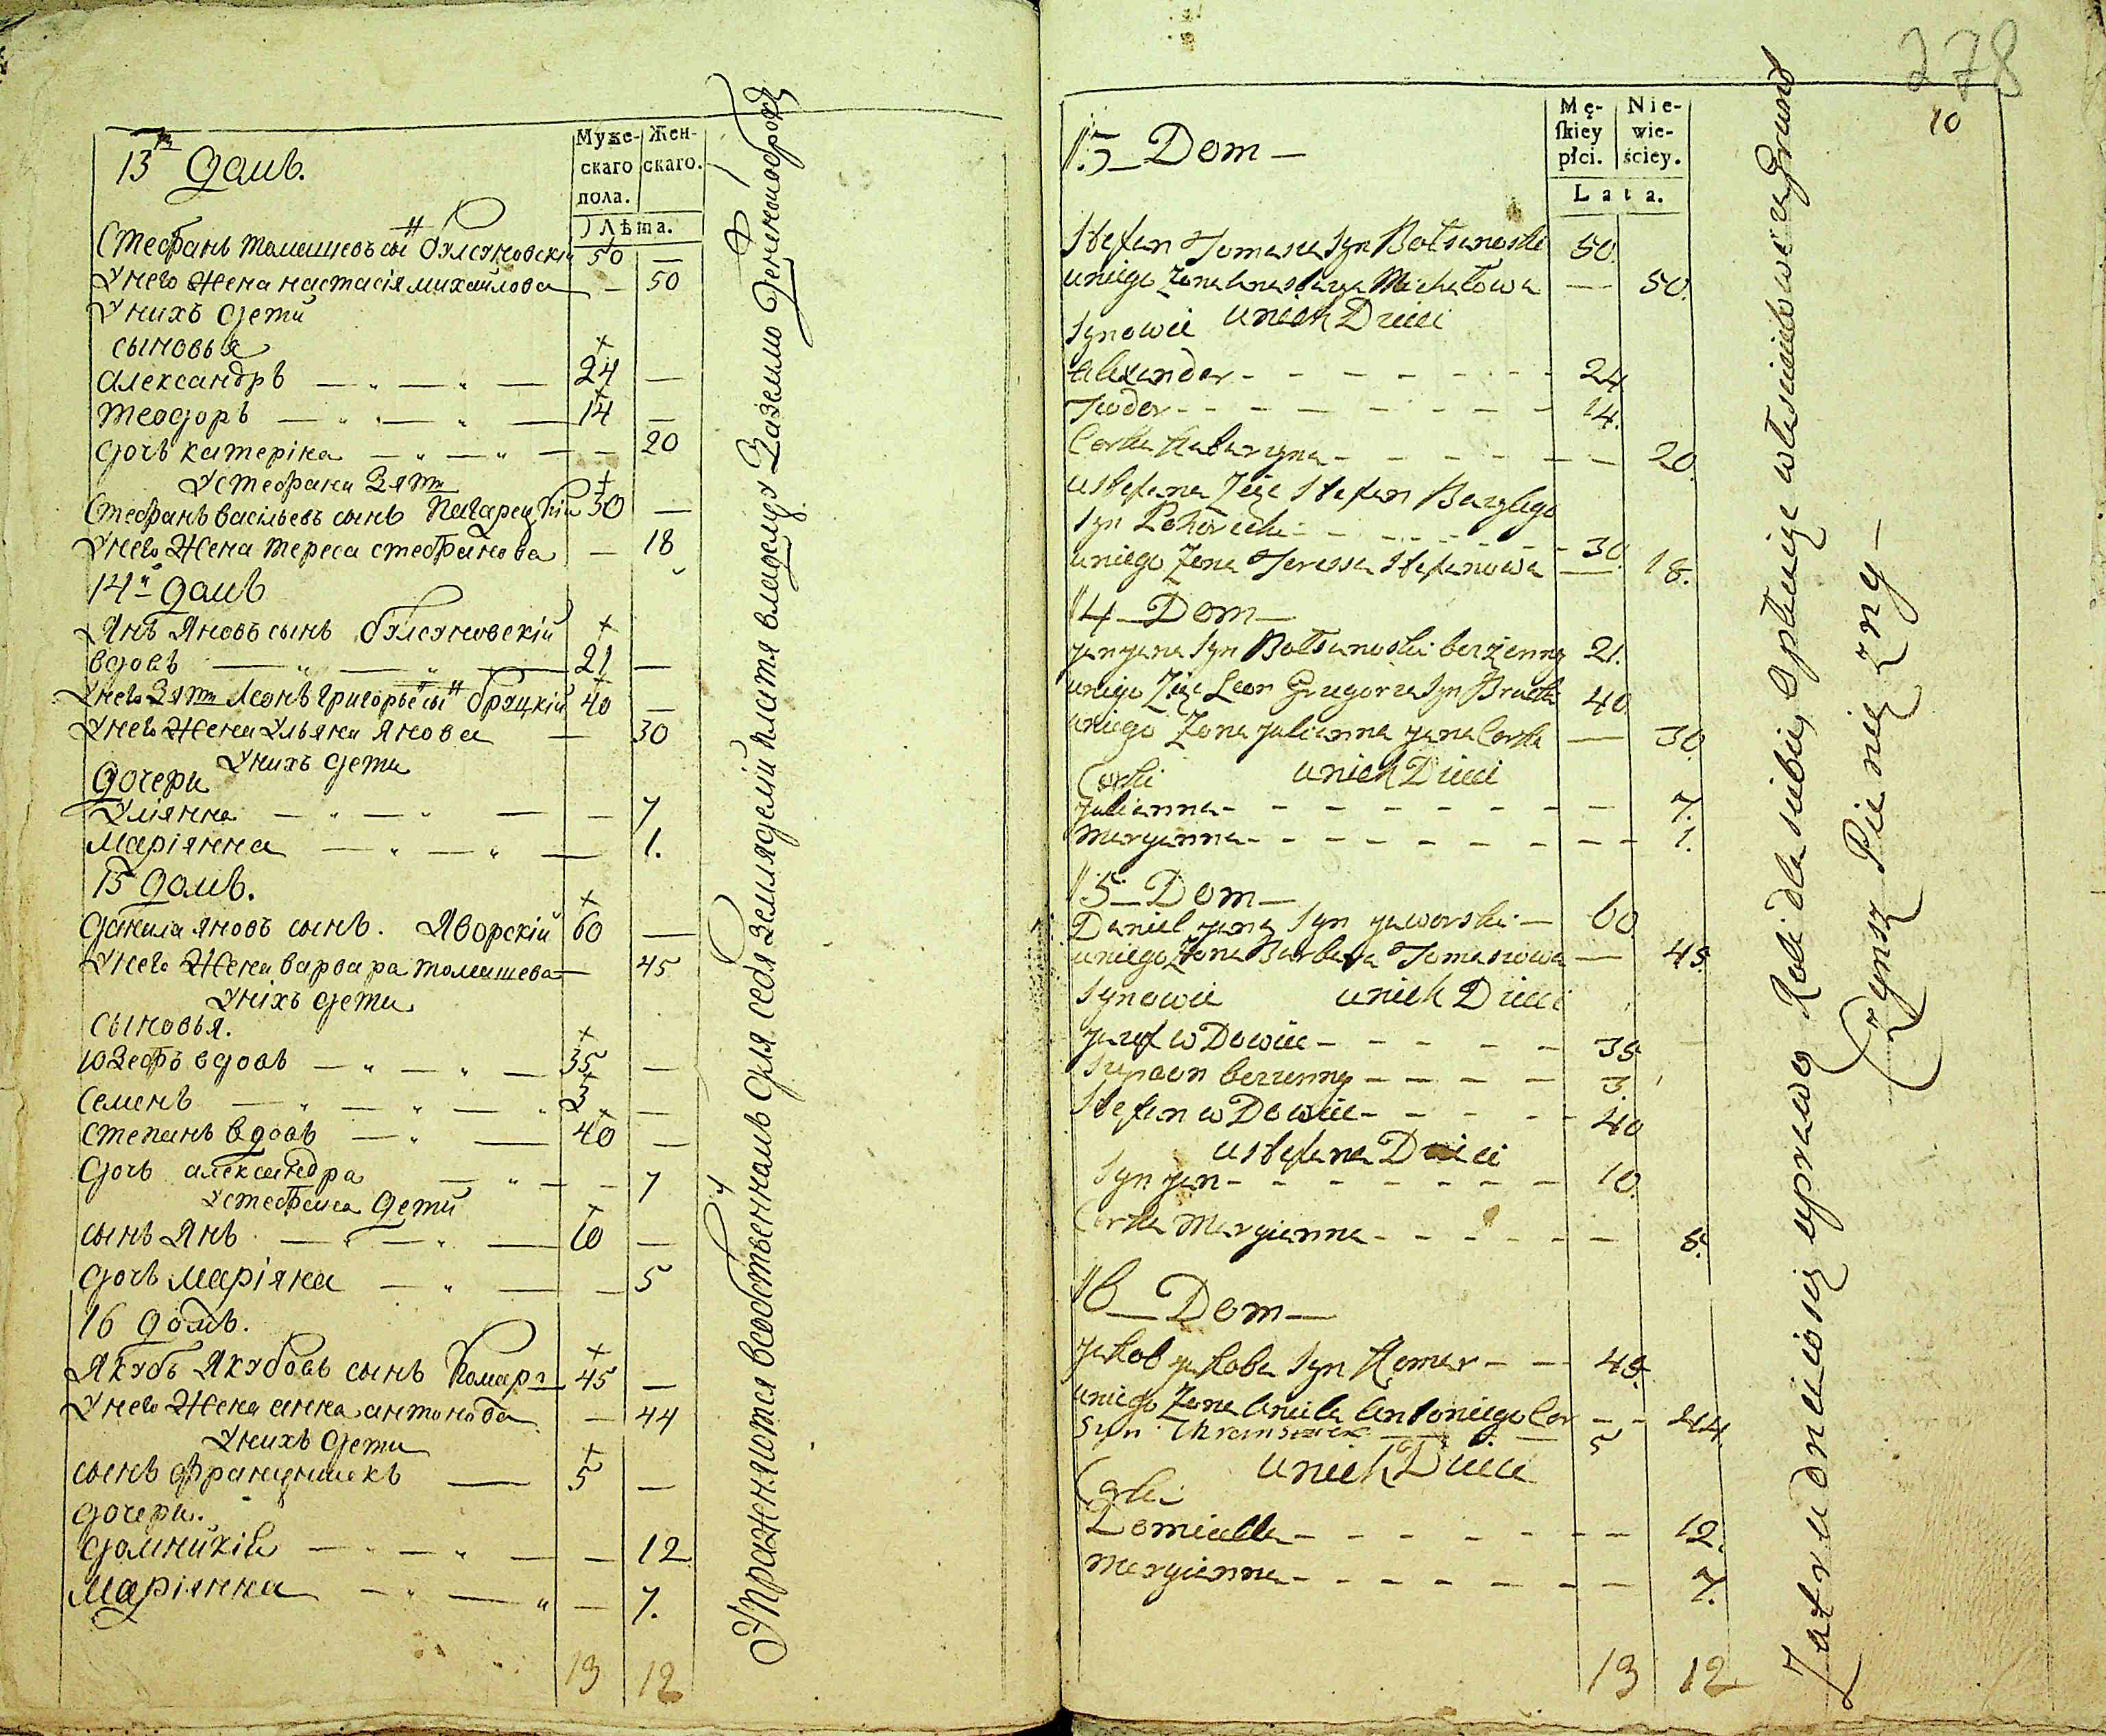 13й домъ.
Муже-
скаго
пола.
Жен-
скаго.
Лѣта.
Стефанъ томашевъ сынъ болсуновскій 50 —
У него жена настасія михайлова — 50
У нихъ дети
сыновья
александръ — " — " — 24 —
теодоръ — " — " — 14 —
дочь катеріна — " — " — — 20
У стефана зять
Стефанъ васільевъ сынъ Пагарецкій 30 —
У него жена тереса стефанова — 18
14й домъ
Янъ Яновъ сынъ болсуновскій
вдовъ — " — " — 21 —
У него зять Леонъ григорьевъ сынъ бруцкій 40 —
У него жена Ульяна Янова — 30
У нихъ дети
дочери
Уліянна — " — " — — 7
Маріянна — " — " — 1.
15 домъ.
данила яновъ сынъ. Яворскій 60 —
У него жена варвара томашева — 45
У ніхъ дети
сыновья.
юзефъ вдовъ — " — " — 35 —
семенъ — " — " — " 3 —
степанъ вдовъ — " — 40 —
дочь александра — " — — 7
У стефана дети
сынъ Янъ — " — " — 10 —
дочь маріяна — " — — 5
16 домъ.
Якубъ Якубовъ сынъ Комаръ 45 —
У него жена анна антонова — 44
У нихъ дети
сынъ францышекъ — 5 —
дочери.
домникія — " — " — — 12
Маріянна — " — " — 7.
13 12
Упражняются всобственнамъ для себя земляделіи платя владельцу За землю Денежный оброкъ
278
10
13 Dom —
Mę-
skiey
płci.
Nie-
wie-
ściey.
Lata.
Stefan Tomasza Syn Bołsunoski 50.
u niego Żona Anastazya Michałowa — 50.
u nich Dzieci
Synowie
Alexander - - - - - - - 24
Teodor - - - - - - - 14.
Corka Katarzyna - - - - - - 20
u Stefana Zięć Stefan Bazylego
Syn Pohorecki - - - - - - 30.
u niego Żona Teressa Stefanowa — 18.
14 Dom —
Jan Jana Syn Bołsunoski bezżenny 21.
u niego Zięć Leon Grzegorza Syn Brucki 40
u niego Żona Julianna Jana Corka — 30.
Corki u nich Dzieci
Julianna - - - - - - - - 7.
Maryanna - - - - - - - - 1.
15 Dom —
Daniel Jana Syn Jaworski — 60
u niego Żona Barbara Tomaszowa — 45
Synowie u nich Dzieci
Jozef w Dowiec - - - - - 35
Szymon bezzenny - - - - 3.
Stefan w Dowiec - - - - 40
u Stefana Dzieci
Syn Jan - - - - - - - 10.
Corka Maryianna - - - - - - 5.
16 Dom —
Jakob Jakoba Syn Komar - - 45.
u niego Żona Aniela Antoniego Cor - - 44
Syn Franciszek — — — 5
u nich Dzieci
Corki
Domicella - - - - - - - 12.
Maryianna - - - - - - - 7.
13 12
Zatrudniaią się uprawą Roli dla siebie, Opłacaiąc właścicielowi za Grunt
Czynsz Pieniężny —